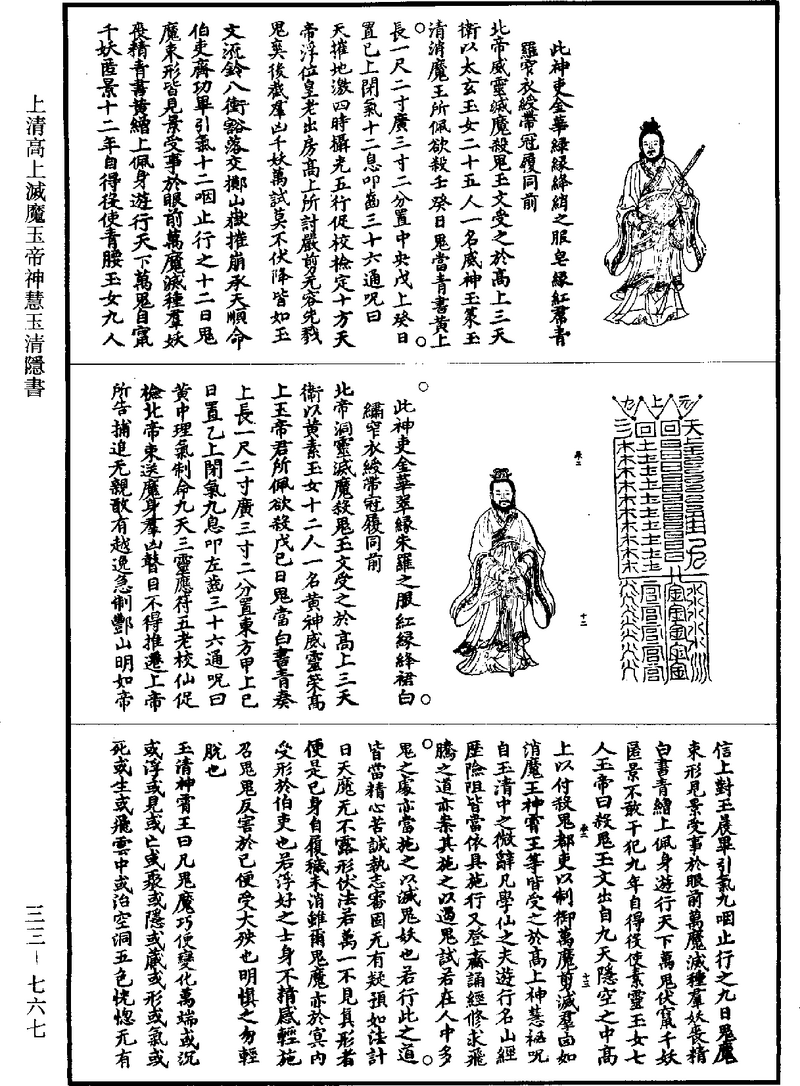 上清高上滅魔玉帝神慧玉清隱書
三三—七六七
此神吏金華綠緣絳綃之服皂緣紅帬青
羅窄衣綬帶冠履同前
北帝威靈滅魔殺鬼玉文受之於高上三天
衛以太玄玉女二十五人一名威神玉策玉
清消魔王所佩欲殺壬癸日鬼當青書黃上
長一尺二寸廣三寸二分置中央戊上癸日
置己上閉氣十二息叩齒三十六通呪曰
天摧地激四時攝光五行促校檢定十方天
帝浮位皇老出房高上所討嚴剪无容先戮
鬼奚後截羣凶千妖萬試莫不伏降皆如玉
文流鈴八衝豁落交擲山嶽摧崩承天順命
伯吏齊功畢引氣十二咽止行之十二日鬼
魔束形皆見景受事於眼前萬魔滅種羣妖
喪精青書黃繒上佩身遊行天下萬鬼自竄
千妖匿景十二年自得役使青腰玉女九人
此神吏金華翠緣朱羅之服紅緣絳裙白
繡窄衣綬帶冠履同前
北帝洞靈滅魔殺鬼玉文受之於高上三天
衛以黃素玉女十二人一名黃神威靈榮高
上玉帝君所佩欲殺戊己日鬼當白書青奏
上長一尺二寸廣三寸二分置東方甲上己
日置乙上閉氣九息叩左齒三十六通呪曰
黃中理氣制命九天三靈應符五老校仙促
檢北帝束送魔身羣凶瞽目不得推遷上帝
所告捕追无親敢有越逸急制酆山明如帝
信上對玉晨畢引氣九咽止行之九日鬼魔
束形見景受事於眼前萬魔滅種羣妖喪精
白書青繒上佩身遊行天下萬鬼伏竄千妖
匿景不敢干犯九年自得役使素靈玉女七
人玉帝曰殺鬼玉文出自九天隱空之中高
上以付殺鬼都吏以制御萬魔剪滅羣凶如
消魔王神霄王等皆受之於高上神慧秘呪
自玉清中之微辭凡學仙之夫遊行名山經
歷險阻皆當依具施行又登齋誦經修求飛
騰之道亦案其施之以遏鬼試若在人中多
鬼之處亦當施之以滅鬼妖也若行此之道
皆當精心苦誠執志審固无有疑預如法計
日天魔无不露形伏法若萬一不見真形者
便是己身自履穢未消雖爾鬼魔亦於冥內
受形於伯吏也若浮好之士身不精感輕施
名鬼鬼反害於己便受大殃也明慎之勿輕
脫也
玉清神霄王曰凡鬼魔巧便變化萬端或沉
或浮或見或亡或聚或隱或藏或形或氣或
死或生或飛雲中或治空洞五色恍惚无有